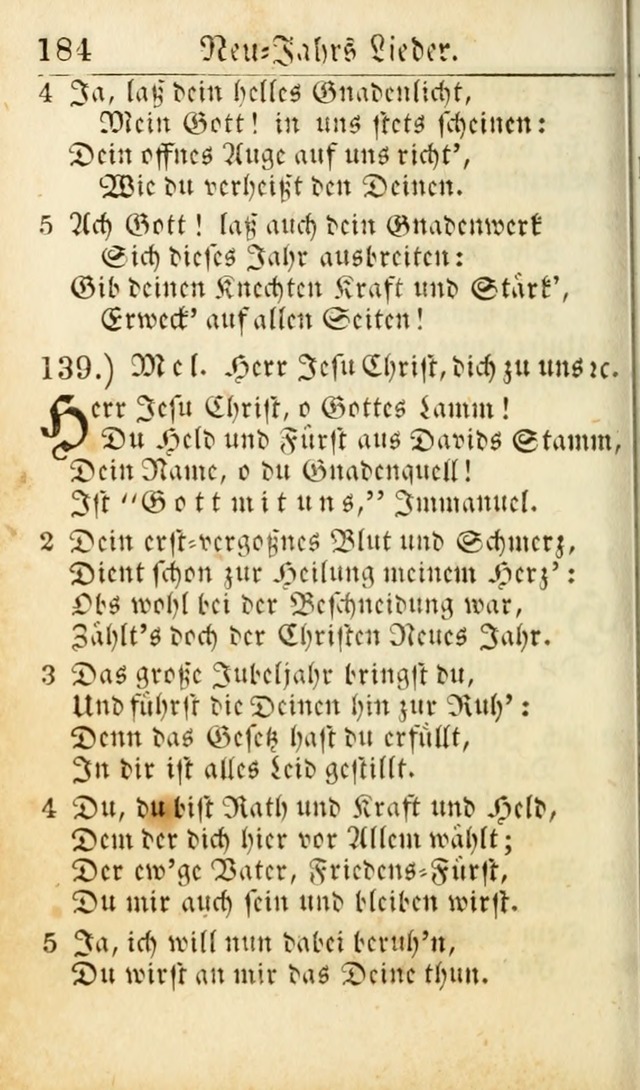 184 Neu-Jahrs Lieder.
4 Ja, laß dein helles Gnadenlicht,
Mein Gott! in uns stets scheinen:
Dein offnes Auge auf uns richt’,
Wie du verheißt den Deinen.
5 Ach Gott! laß auch dein Gnadenwerk
Sich dieses Jahr ausbreiten:
Gib deinen Knechten Kraft und Stärk’,
Erweck’ auf allen Seiten!
139.) Mel. Herr Jesu Christ, dich zu uns ꝛc.
Herr Jesu Christ, o Gottes Lamm!
Du Held und Fürst aus Davids Stamm,
Dein Name, o du Gnadenquell!
Ist “Gott mit uns,” Immanuel.
2 Dein erst-vergoßnes Blut und Schmerz,
Dient schon zur Heilung meinem Herz’:
Obs wohl bei der Beschneidung war,
Zählt’s doch der Christen Neues Jahr.
3 Das große Jubeljahr bringst du,
Und führst die Deinen hin zur Ruh’:
Denn das Gesetz hast du erfüllt,
In dir ist alles Leid gestillt.
4 Du, du bist Rath und Kraft und Held,
Dem der dich hier vor Allem wählt;
Der ew’ge Vater, Friedens-Fürst,
Du mir auch sein und bleiben wirst.
5 Ja, ich will nun dabei beruh’n,
Du wirst an mir das Deine thun.